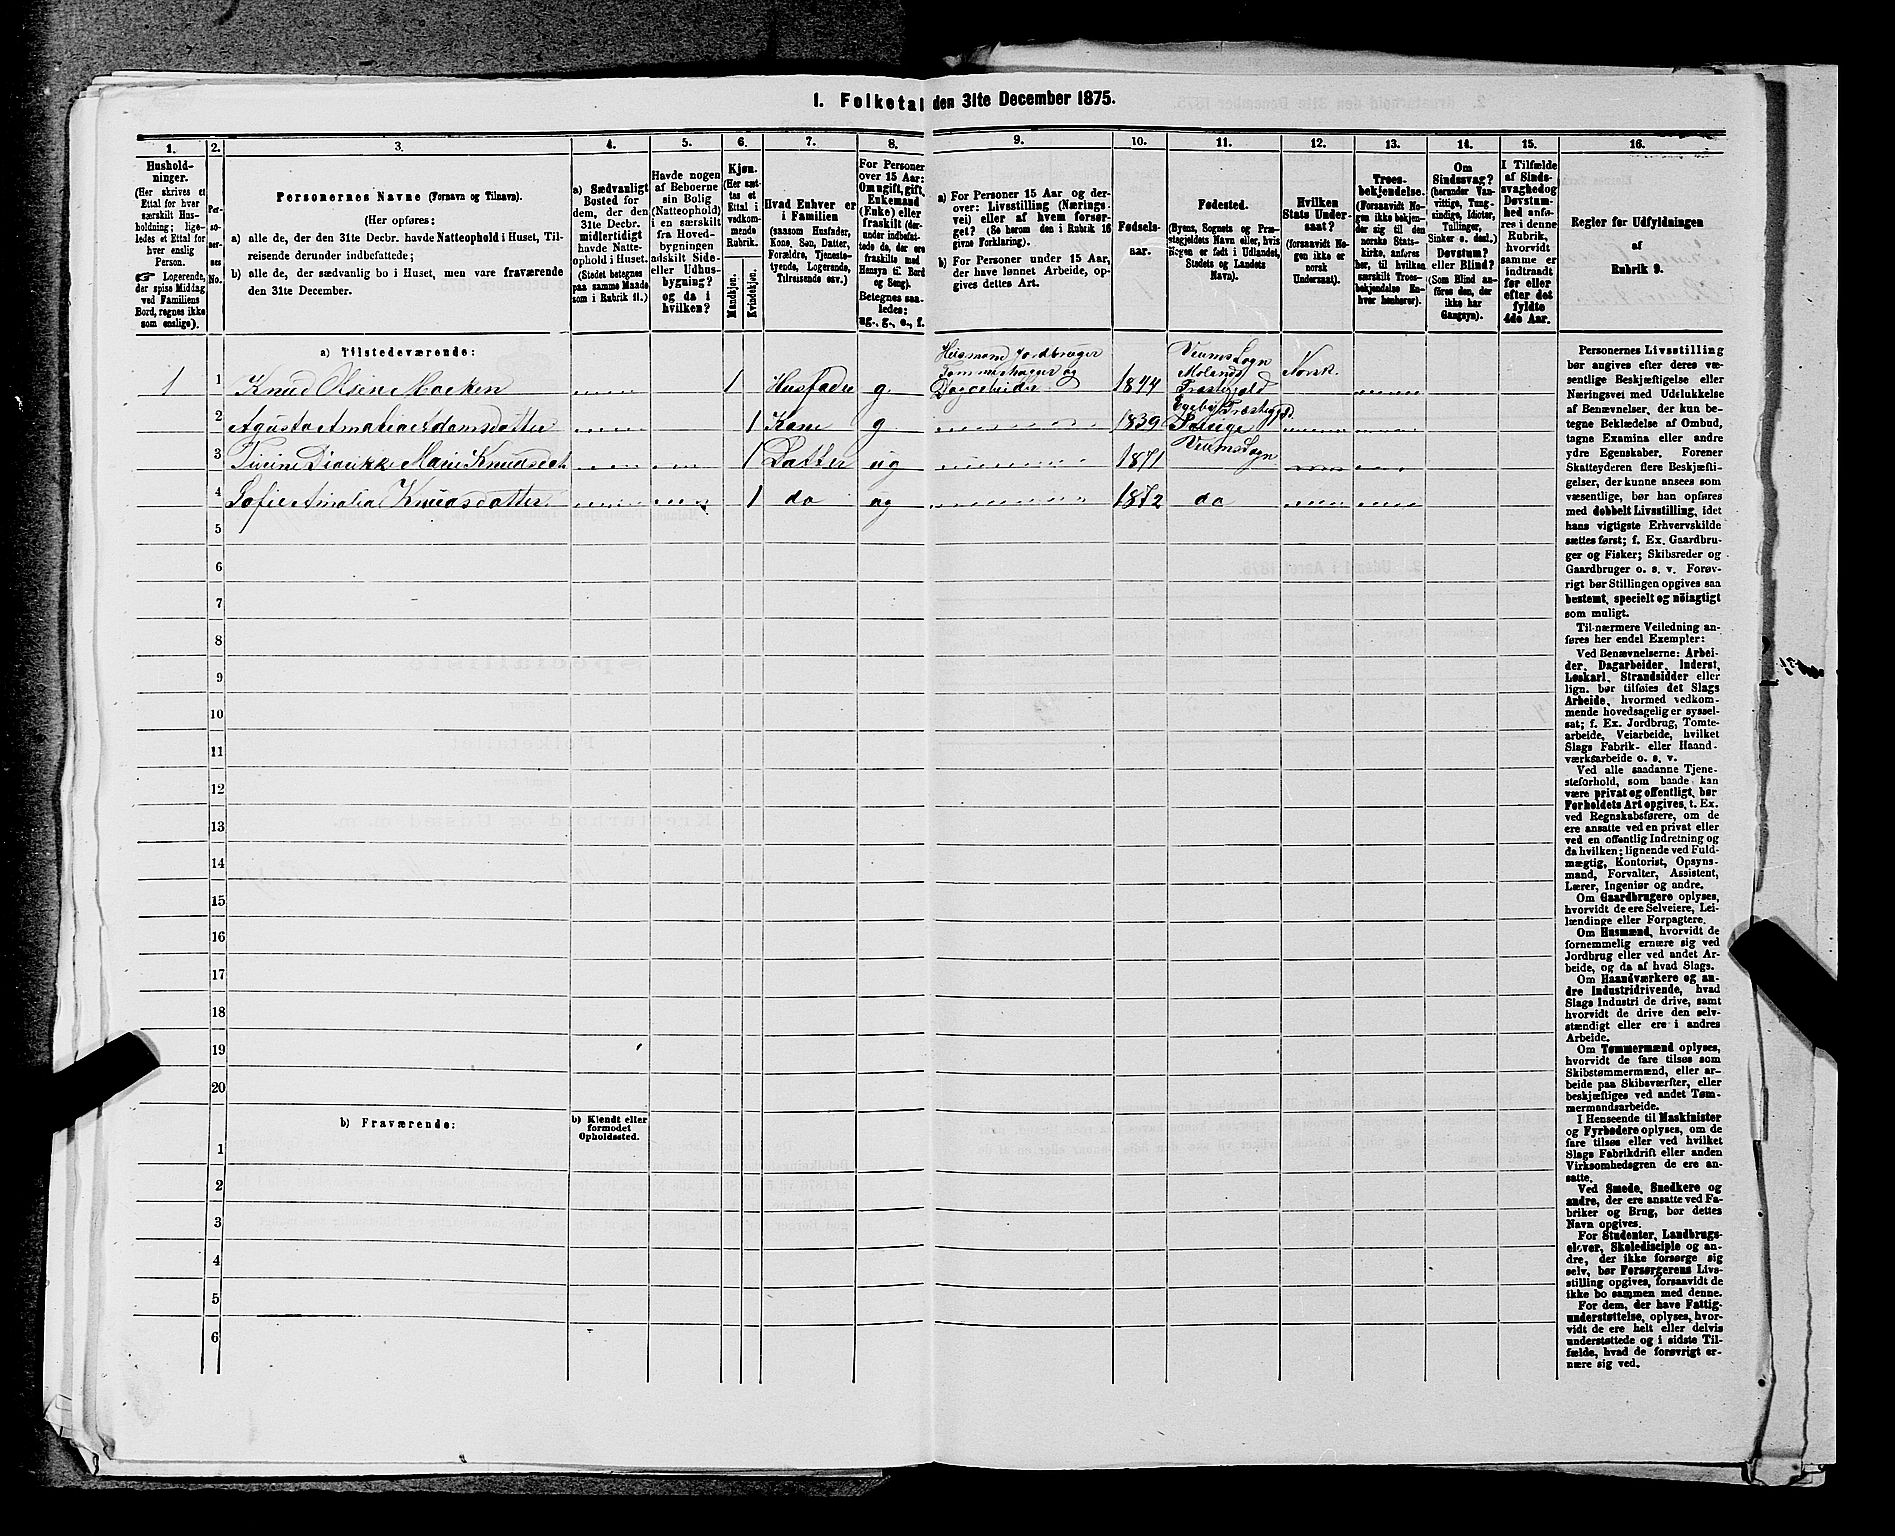 I. Folketal den 31te December 1875.
1. 2. 3. 4. 5. 6. 7. 8. 9. 10. 11. 12. 13. 14. 15. 16.
Hushold-
ninger.
(Her skrives et
Ettal for hver
særskilt Hus-
holdning; lige-
ledes et Ettal for
hver enslig
Person.
☞ Logerende,
der spise Middag
ved Familiens
Bord, regnes ikke
som enslige).
Per-
so-
ner-
nes
No.
Personernes Navne (Fornavn og Tilnavn).
(Her opføres:
a) alle de, der den 31te Decbr. havde Natteophold i Huset, Til-
reisende derunder indbefattede;
b) alle de, der sædvanlig bo i Huset, men vare fraværende
den 31te December.
a) Sædvanligt
Bosted for
dem, der den
31te Decbr.
midlertidigt
havde Natte-
ophold i Huset.
(Stedet betegnes
paa samme Maade
som i Rubrik 11.)
Havde nogen
af Beboerne
sin Bolig
(Natteophold)
i en særskilt
fra Hoved-
bygningen
adskilt Side-
eller Udhus-
bygning?
og da i
hvilken?
Kjøn.
(Her sæt-
tes et
Ettal i
vedkom-
mende
Rubrik.
Mandkjøn.
Kvindekjøn.
Hvad Enhver er
i Familien
(saasom Husfader,
Kone, Søn, Datter,
Forældre, Tjeneste-
tyende, Logerende,
Tilreisende osv.)
For Personer
over 15 Aar:
Om ugift, gift,
Enkemand
(Enke) eller
fraskilt (der-
under indbefat-
tede da, der ere
fraskilte med
Hensyn til Bord
og Seng).
Betegnes saa-
ledes:
ug., g., e., f.
a) For Personer 15 Aar og der-
over: Livsstilling (Nærings-
vei) eller af hvem forsør-
get? (Se herom den i Rubrik 16
givne Forklaring).
b) For Personer under 15 Aar,
der have lønnet Arbeide, op-
gives dettes Art.
Fødsels-
aar.
Fødested.
(Byens, Sognets og Præ-
stegjeldets Navn eller, hvis
Nogen er født i Udlandet,
Stedets og Landets
Navn).
Hvilken
Stats Under-
saat?
(forsaavidt No-
gen ikke er
norsk
Undersaat).
Troes-
bekjendelse.
(Forsaavidt No-
gen ikke bekjen-
der sig til den
norske Stats-
kirke, anføres
her, til hvilken
særskilt Troes-
bekjendelse En-
hver henhører).
Om
Sindssvag?
(herunder Van-
vittige, Tung-
sindige, Idioter,
Tullinger,
Sinker o. desl.)
Døvstum?
eller Blind?
(Som Blind an-
føres den, der
ikke har
Gangsyn).
I Tilfælde
af Sinds-
svaghed og
Døvstum-
hed anfø-
res i denne
Rubrik,
hvorvidt
samme er
indtraadt
før eller
efter det
fyldte
4de Aar.
Regler for Udfyldningen
af
Rubrik 9.
a) Tilstedeværende:
1 1 Knud Olsen Moeken 1 Husfader g. Husmand Jordbruger Tømmerhugger og Dagarbeider 1844 Veums Sogn Molands Præstegjeld Norsk
2 Agusta Amalia Adamsdatter 1 Kone g. 1839
3 Marie Knudsdat 1 Datter ug 1871 Veums Sogn
4 Sofie Amalia Knudsdatter 1 do ug 1872 do
5
6
7
8
9
10
11
12
13
14
15
16
17
18
19
20
b) Fraværende:
b) Kjendt eller
formodet
Opholdssted.
1
2
3
4
5
6
Personernes Livsstilling
bør angives efter deres væ-
sentlige Beskjæftigelse eller
Næringsvei med Udelukkelse
af Benævnelser, der kun be-
tegne Beklædelse af Ombud,
tagne Examina eller andre
ydre Egenskaber. Forener
Skatteyderen flere Beskjæfti-
gelser, der kunne ansees som
væsentlige, bør han opføres
med dobbelt Livsstilling, idet
hans vigtigste Erhvervskilde
sættes først; f. Ex. Gaardbru-
ger og Fisker; Skibsreder og
Gaardbruger o. s. v. Forøv-
rigt bør Stillingen opgives saa
bestemt, specielt og nöiagtigt
som muligt.
Til nærmere Veiledning an-
føres her endel Exempler:
Ved Benævnelserne: Arbei-
der, Dagarbeider, Inderst,
Løskarl, Strandsidder eller
lign. bør tilføies det Slags
Arbeide, hvormed vedkom-
mende hovedsagelig er syssel-
sat; f. Ex. Jordbrug, Tomte-
arbeide, Veiarbeide, hvilket
Slags Fabrik- eller Haand-
værksarbeide o. s. v.
Ved alle saadanne Tjene-
steforhold, som baade kan
være privat og offentligt, bør
Forholdets Art opgives, t. Ex.
ved Regnskabsførere, om de
ere ansatte ved en privat eller
ved en offentlig Indretning og
da hvilken; lignende ved Fuld-
mægtig, Kontorist, Opsyns-
mand, Forvalter, Assistent,
Lærer, Ingeniør og andre.
Om Gaardbrugere oplyses,
hvorvidt de ere Selveiere, Lei-
lændinge eller Forpagtere.
Om Husmænd, hvorvidt de
fornemmelig ernære sig ved
Jordbrug eller ved andet Ar-
beide, og da af hvad Slags.
Om Haandværkere og an-
dre Industridrivende, hvad
Slags Industri de drive, samt
hvorvidt de drive den selv-
stændigt eller ere i andres
Arbeide.
Om Tømmermænd oplyses,
hvorvidt de fare tilsøs som
Skibstømmermænd, eller ar-
beide paa Skibsværfter, eller
beskjæftiges ved andet Tøm-
mermandsarbeide.
I Henseende til Maskinister
og Fyrbødere oplyses, om de
fare tilsøs eller ved hvilket
Slags Fabrikdrift eller anden
Virksomhedsgren de ere an-
satte.
Ved Smede, Snedkere og
andre, der ere ansatte ved Fa-
briker og Brug, bør dettes
Navn opgives.
For Studenter, Landbrugs-
elever, Skoledisciple og an-
dre, der ikke forsørge sig
selv, bør Forsørgerens Livs-
stilling opgives, forsaavidt de
ikke bo sammen med denne.
For dem, der have Fattig-
understøttelse, oplyses, hvor-
vidt de ere helt eller delvis
understøttede og i sidste Til-
fælde, hvad de forøvrigt er-
nære sig ved.